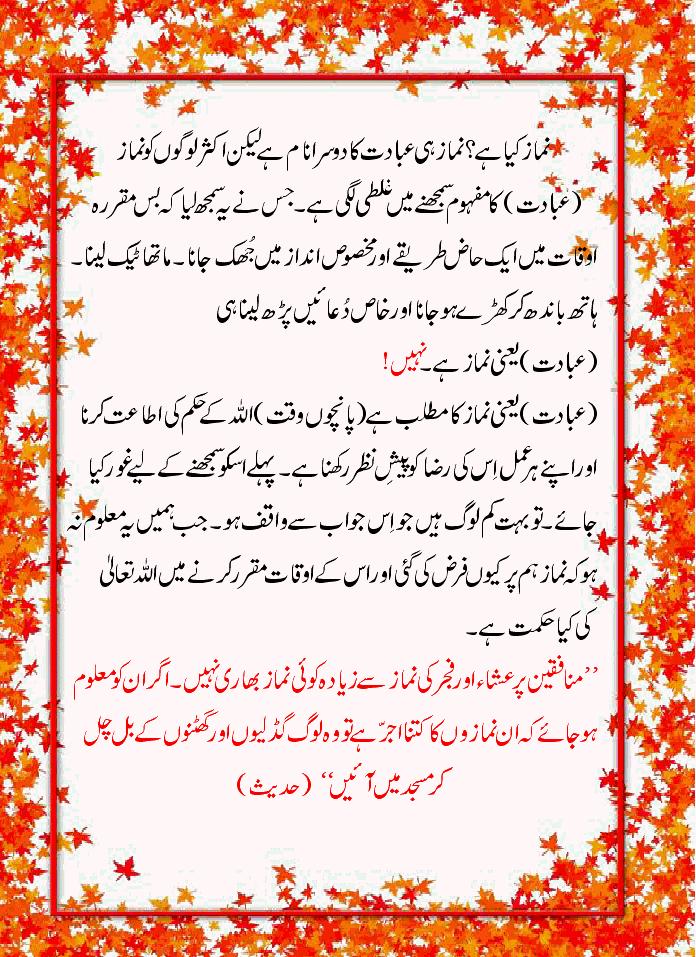 نماز کیا ہے؟ نماز ہی عبادت کا دوسرا نام ہے لیکن اکثر لوگوں کو نماز
(عبادت) کا مفہوم سمجھنے میں غلطی لگی ہے۔ جس نے یہ سمجھ لیا کہ بس مقررہ
اوقات میں ایک حاض طریقے اور مخصوص انداز میں جُھک جانا۔ ماتھا ٹیک لینا۔
ہاتھ باندھ کر کھڑے ہو جانا اور خاص دُعائیں پڑھ لینا ہی
(عبادت) یعنی نماز ہے۔ نہیں!
(عبادت) یعنی نماز کا مطلب ہے (پانچوں وقت) اللہ کے حکم کی اطاعت کرنا
اور اپنے ہر عمل اِس کی رضا کو پیشِ نظر رکھنا ہے۔ پہلے اسکو سمجھنے کے لیے غور کیا
جائے۔ تو بہت کم لوگ ہیں جو اِس جواب سے واقف ہو۔ جب ہمیں یہ معلوم نہ
ہو کہ نماز ہم پر کیوں فرض کی گئی اور اس کے اوقات مقرر کرنے میں اللہ تعالیٰ
کی کیا حکمت ہے۔
’’منافقین پر عشاء اور فجر کی نماز سے زیادہ کوئی نماز بھاری نہیں۔ اگر ان کو معلوم
ہو جائے کہ ان نمازوں کا کتنا اجرّ ہے تو وہ لوگ گڈلیوں اور گھٹنوں کے بل چل
کر مسجد میں آئیں‘‘ (حدیث)